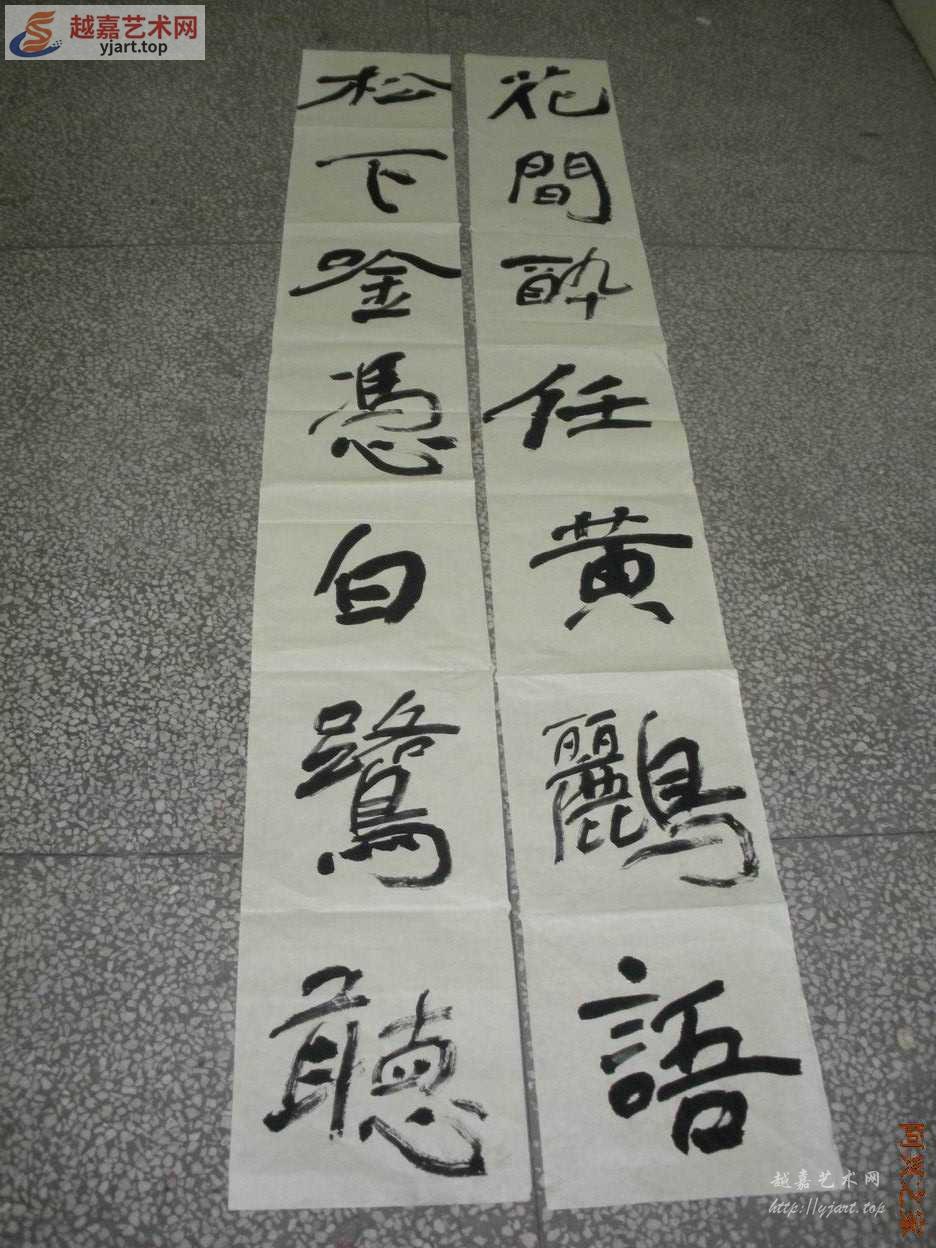 越嘉艺术网
yjart.top
花間酔任黄鸝語
松下唫憑白鷺聽
越嘉艺术网
http://yjart.top